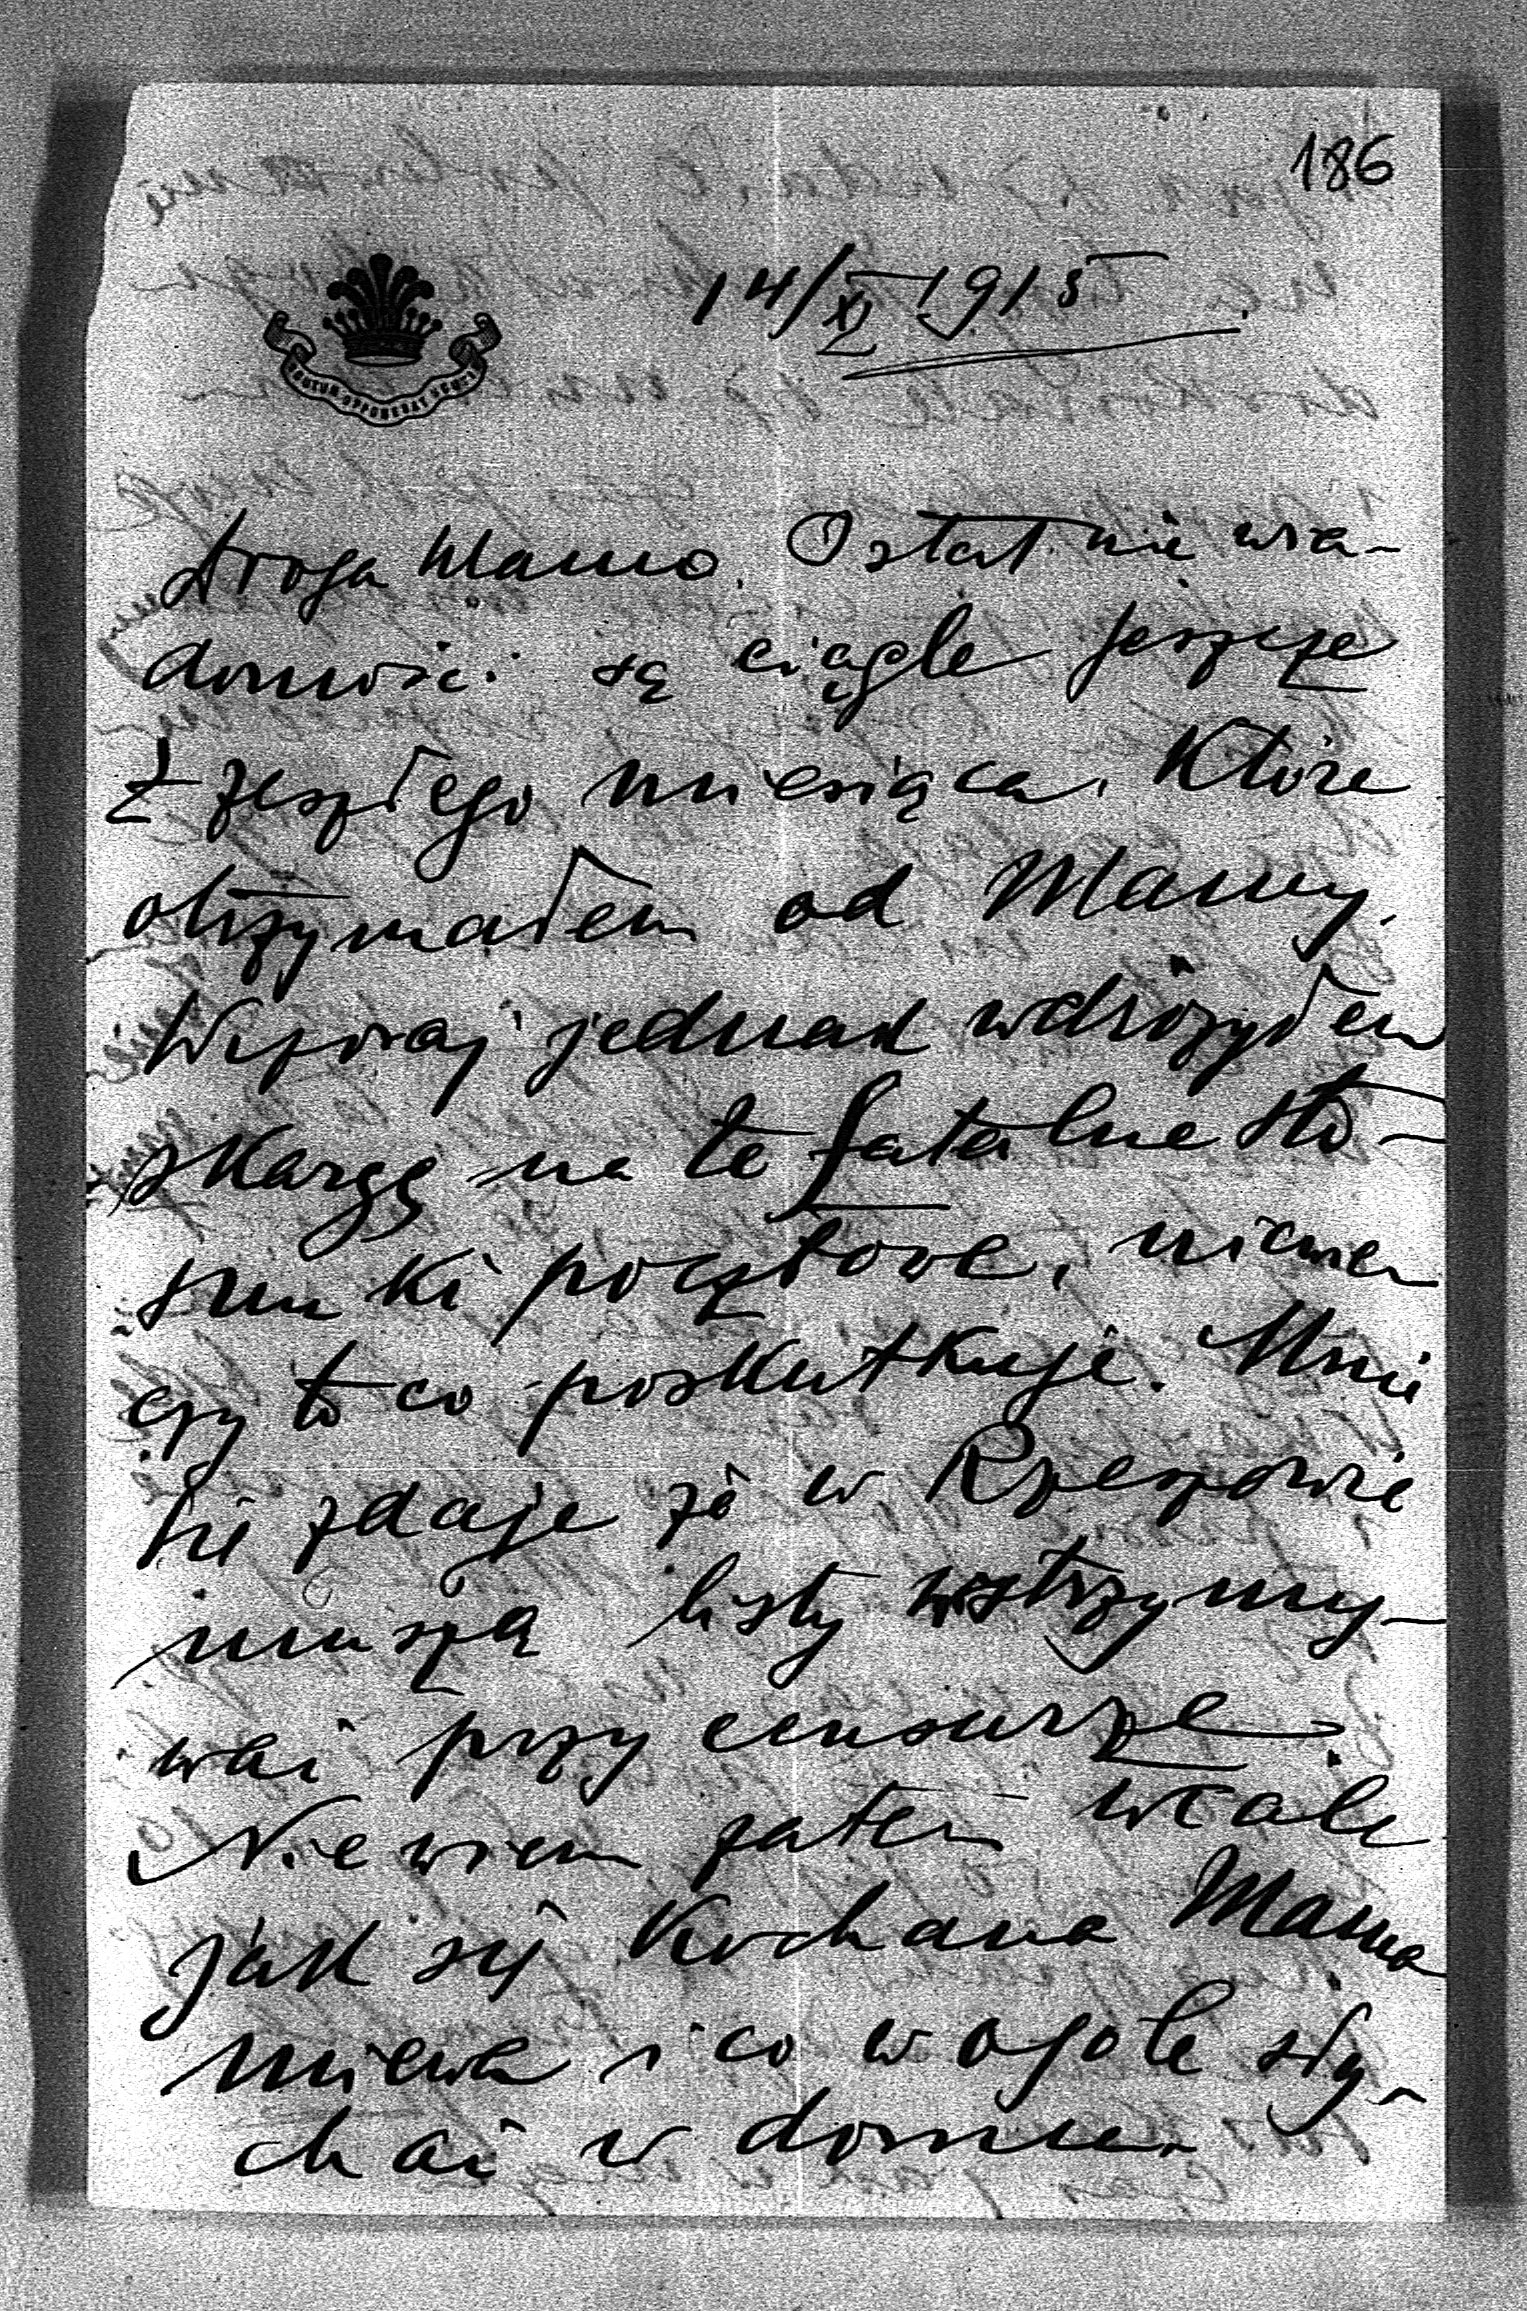 186
14/XI 1915
SCUTUM OPPONEBAT SCUTIS
Droga Mamo. Ostatnie wia-
domości są ciągle jeszcze
z zeszłego miesiąca, które
otrzymałem od Mamy.
Wczoraj jednak wdrożyłem
skargę na te fatalne sto-
sunki pocztowe, niewiem
czy to co poskutkuje. Mnie
się zdaje że w Rzeszowie
muszą listy wstrzymy-
wać przy censurze.
Nie wiem zatem wcale
jak się Kochana Mama
miewa i co wogóle sły-
chać w domu.